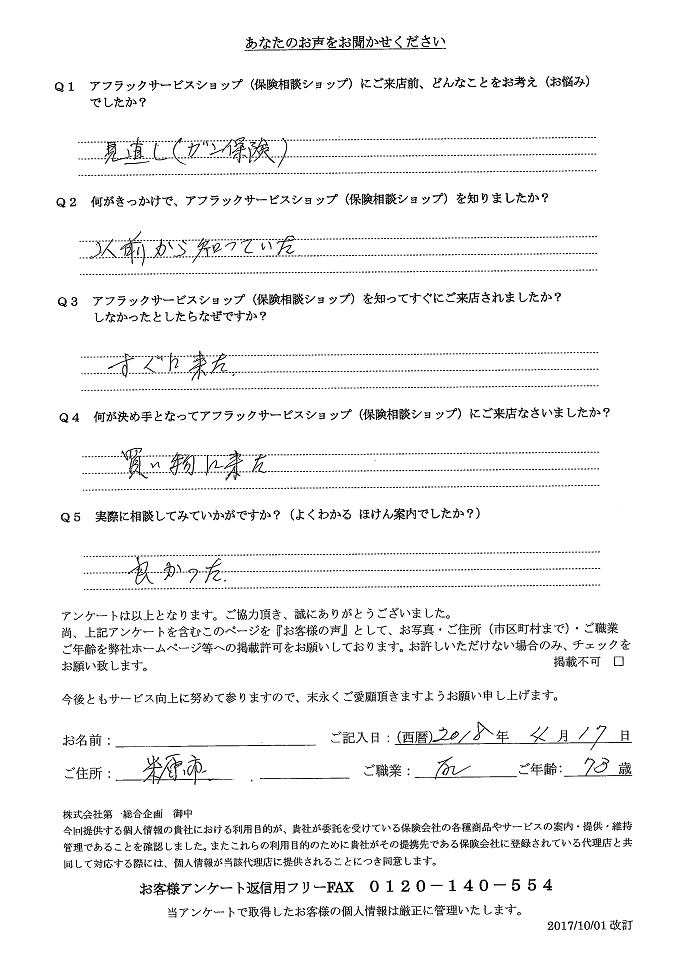 あなたのお声をお聞かせください
Q1 アフラックサービスショップ（保険相談ショップ）にご来店前、どんなことをお考え（お悩み）
でしたか？
見直し（ガン保険）
Q2 何がきっかけで、アフラックサービスショップ（保険相談ショップ）を知りましたか？
以前から知っていた
Q3 アフラックサービスショップ（保険相談ショップ）を知ってすぐにご来店されましたか？
しなかったとしたらなぜですか？
すぐに来た.
Q4 何が決め手となってアフラックサービスショップ（保険相談ショップ）にご来店なさいましたか？
買い物に来た
Q5 実際に相談してみていかがですか？（よくわかる ほけん案内でしたか？）
良かった.
アンケートは以上となります。ご協力頂き、誠にありがとうございました。
尚、上記アンケートを含むこのページを『お客様の声』として、お写真・ご住所（市区町村まで）・ご職業
ご年齢を弊社ホームページ等への掲載許可をお願いしております。お許しいただけない場合のみ、チェックを
お願い致します。 掲載不可 □
今後ともサービス向上に努めて参りますので、末永くご愛顧頂きますようお願い申し上げます。
お名前： ご記入日：(西暦)2018年 4月 17日
ご住所： 米原市 ご職業： ご年齢： 73歳
株式会社第一総合企画 御中
今回提供する個人情報の貴社における利用目的が、貴社が委託を受けている保険会社の各種商品やサービスの案内・提供・維持
管理であることを確認しました。またこれらの利用目的のために貴社がその提携先である保険会社に登録されている代理店と共
同して対応する際には、個人情報が当該代理店に提供されることにつき同意します。
お客様アンケート返信用フリーFAX 0120－140－554
当アンケートで取得したお客様の個人情報は厳正に管理いたします。
2017/10/01 改訂